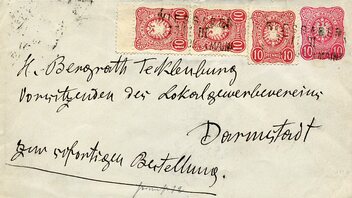 10 10 10 10
H. Bergrath Tecklenburg
Vorsitzenden des Lokalgewerbevereins
Darmstadt
zur sofortigen Bestellung.